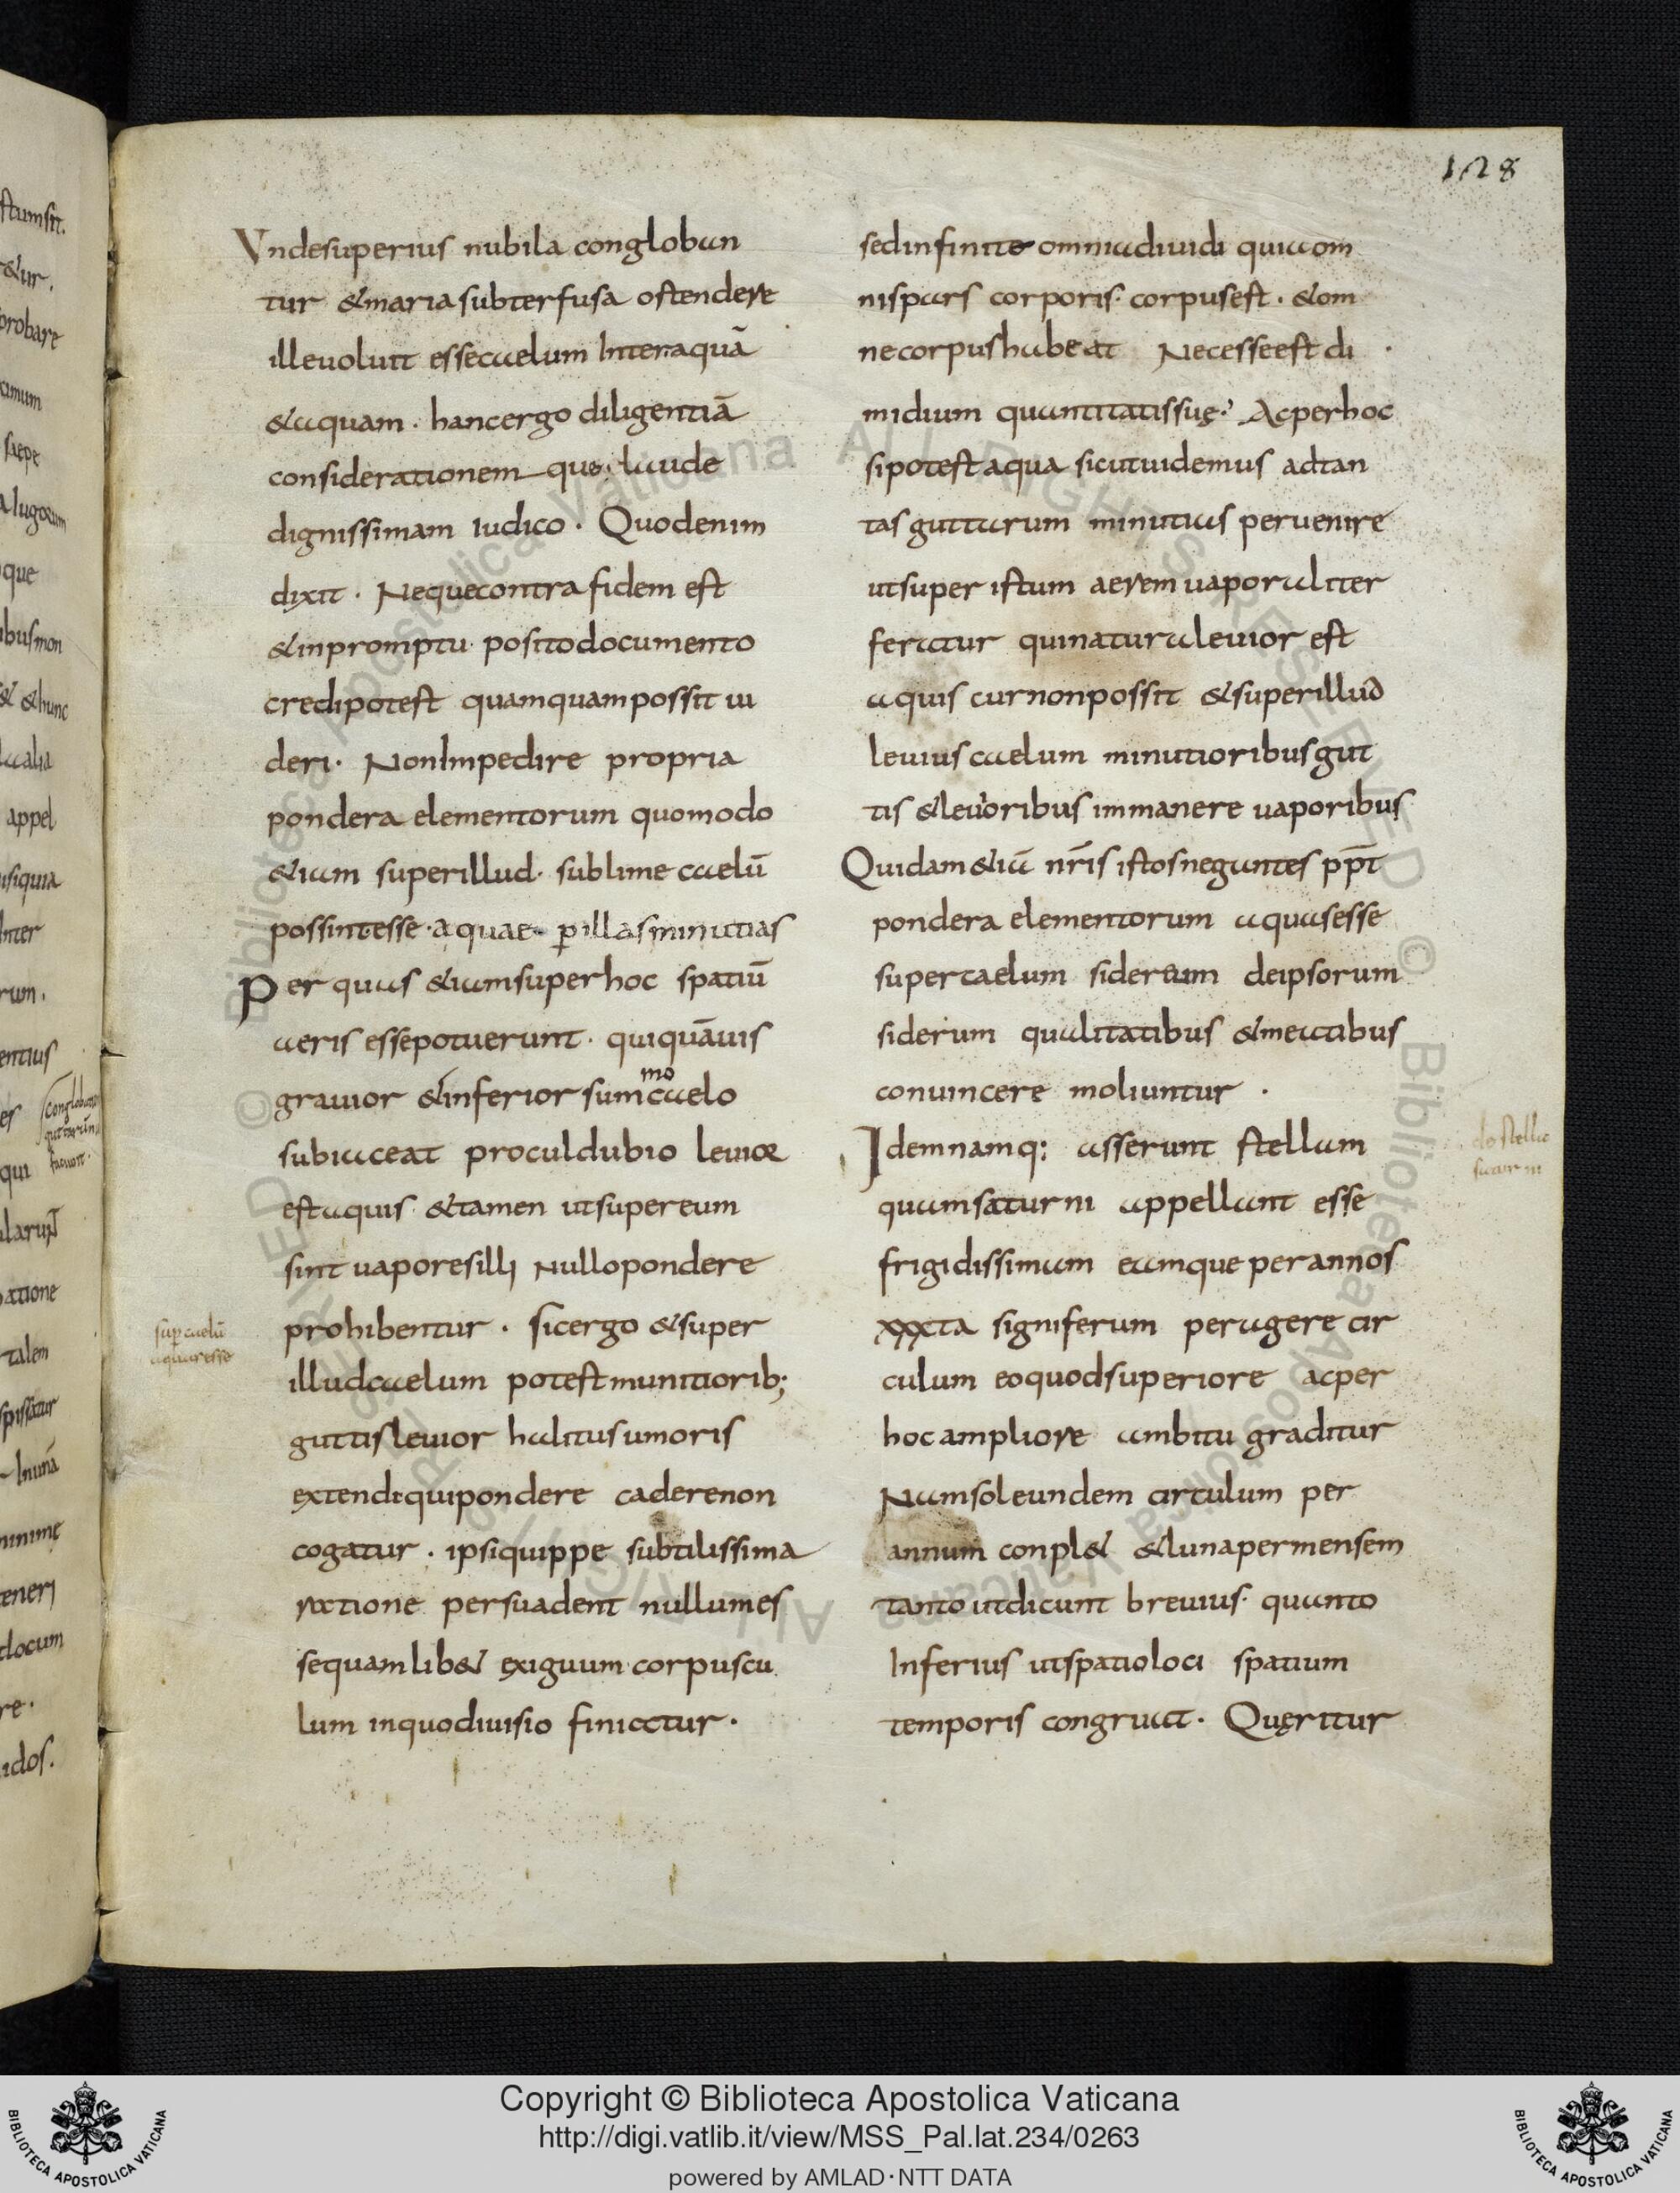 128
Vndesuperius nubila congloban
tur &mariasubterfusa ostendere
illeuoluit essecaelum Interaquā
&aquam · hancergo diligentiā
considerationem que laude
dignissimam iudico · Quodenim
dixit · Nequecontra fidem est
&inpromptu positodocumento
credipotest quamquampossit ui
deri · NonImpedire propria
pondera elementorum quomodo
&iam superillud · sublime caelū
possintesse · aquae p̲illasminutias
Per quas &iamsuperhoc spatiū
aeris essepotuerunt · quiquāuis
grauior &inferior sum̅caelo
mo
subiaceat proculdubio leuior
estaquis &tamen utsupereum
sint uaporesilli Nullopondere
prohibentur · sicergo &super
illudcaelum potestmunitiorib;
guttisleuior halitusumoris
extendiquipondere caderenon
cogatur · ipsiquippe subtilissima
ratione persuadent nullumes
sequamlib& exiguum corpuscu
lum inquodiuisio finiatur ·
sup caelū
aquaresse
sedinfinite omniadiuidi quiaom
nispars corporis · corpusest · &om
necorpushabeat Necesseest di
midium quantitatissuę · Acperhoc
sipotest aqua sicutuidemus adtan
tas guttarum minutias peruenire
utsuper istum aerem uaporaliter
feratur quinaturaleuior est
aquis curnonpossit &superillud
leuius caelum minutioribusgut
tis &leuioribus immanere uaporibus
Quidam&iā nr̄is istosnegantes pp̄t
pondera elementorum aquasesse
supercaelum sidereum deipsorum
siderum qualitatibus &meatibus
conuincere moliuntur ·
Idemnamq; asserunt stellam
quamsaturni appellant esse
frigidissimam eamque perannos
xxxta signiferum peragere cir
culum eoquodsuperiore acper
hocampliore ambitu graditur
Namsoleundem circulum per
annum conpl& &lunapermensem
tanto utdicunt breuius · quanto
Inferius utspatioloci spatium
temporis congruat · Quęritur
de stella
saturni
Copyright © Biblioteca Apostolica Vaticana
http://digi.vatlib.it/view/MSS_Pal.lat.234/0263
powered by AMLAD·NTT DATA
BIBLIOTECA APOSTOLICA VATICANA
BIBLIOTECA APOSTOLICA VATICANA